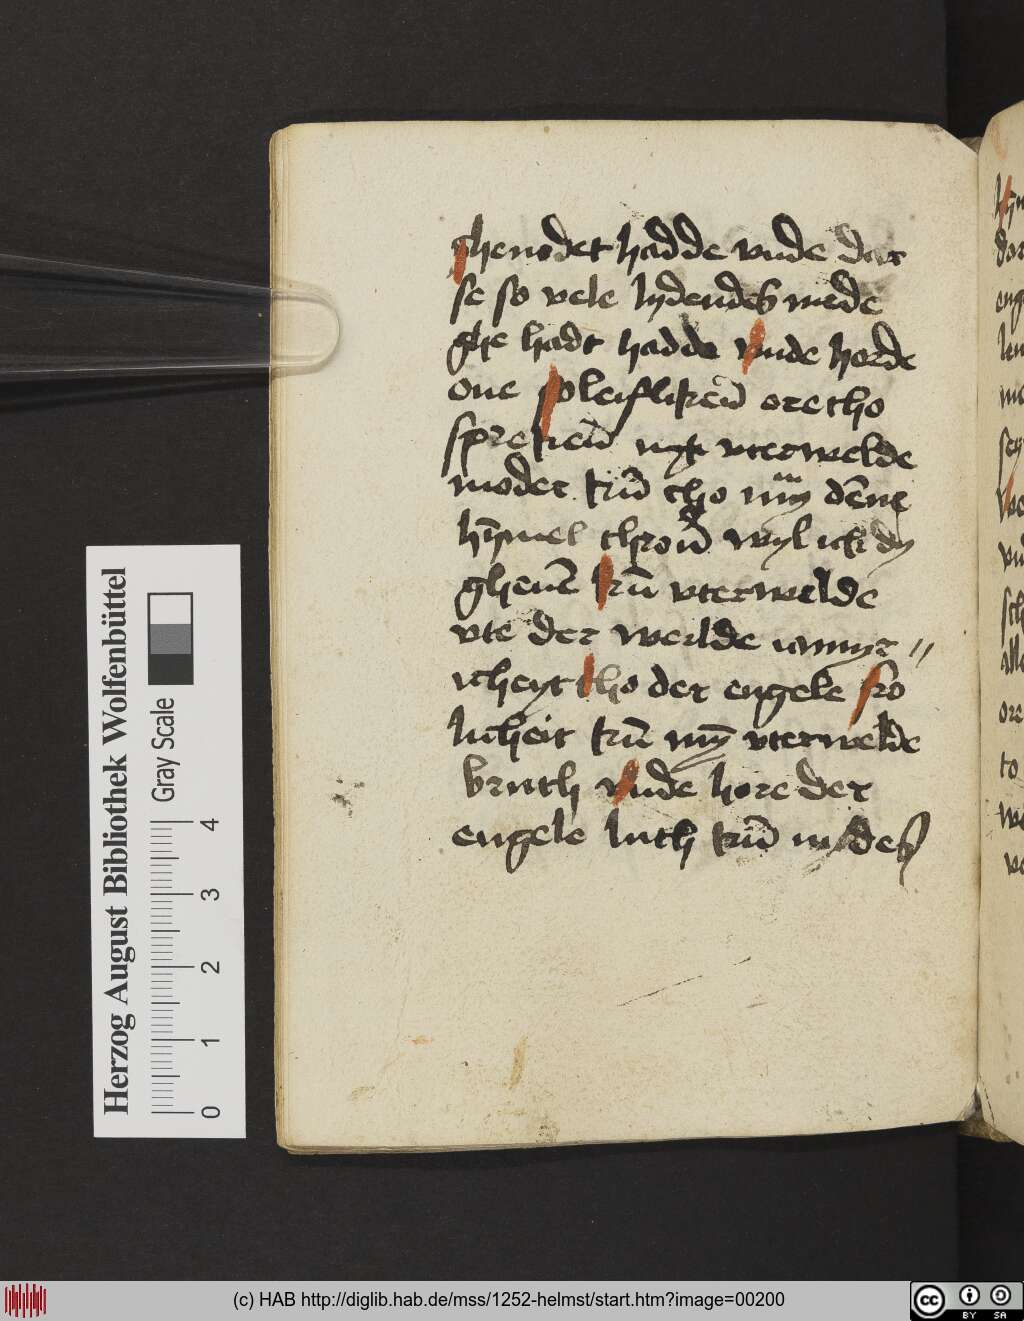 ghendet hadde vnde dat
se so vele lydendes mede
ghe hadt hadde vnde horde
one so leiflikeñ ore tho
sprekeñ myt vterwelde
moder kūm tho myͫ dēme
hȳmel throñ wyl ick dy
gheuē kūm vterwelde
vte der werlde iamyt //
icheyt tho der engele fro
licheit kūm mȳ vterwelde
bruth vnde hore der
engele luth kūm in des
Herzog August Bibliothek Wolfenbüttel
Gray Scale
0 1 2 3 4
(c) HAB http://diglib.hab.de/mss/1252-helmst/start.htm?image=00200
cc BY SA